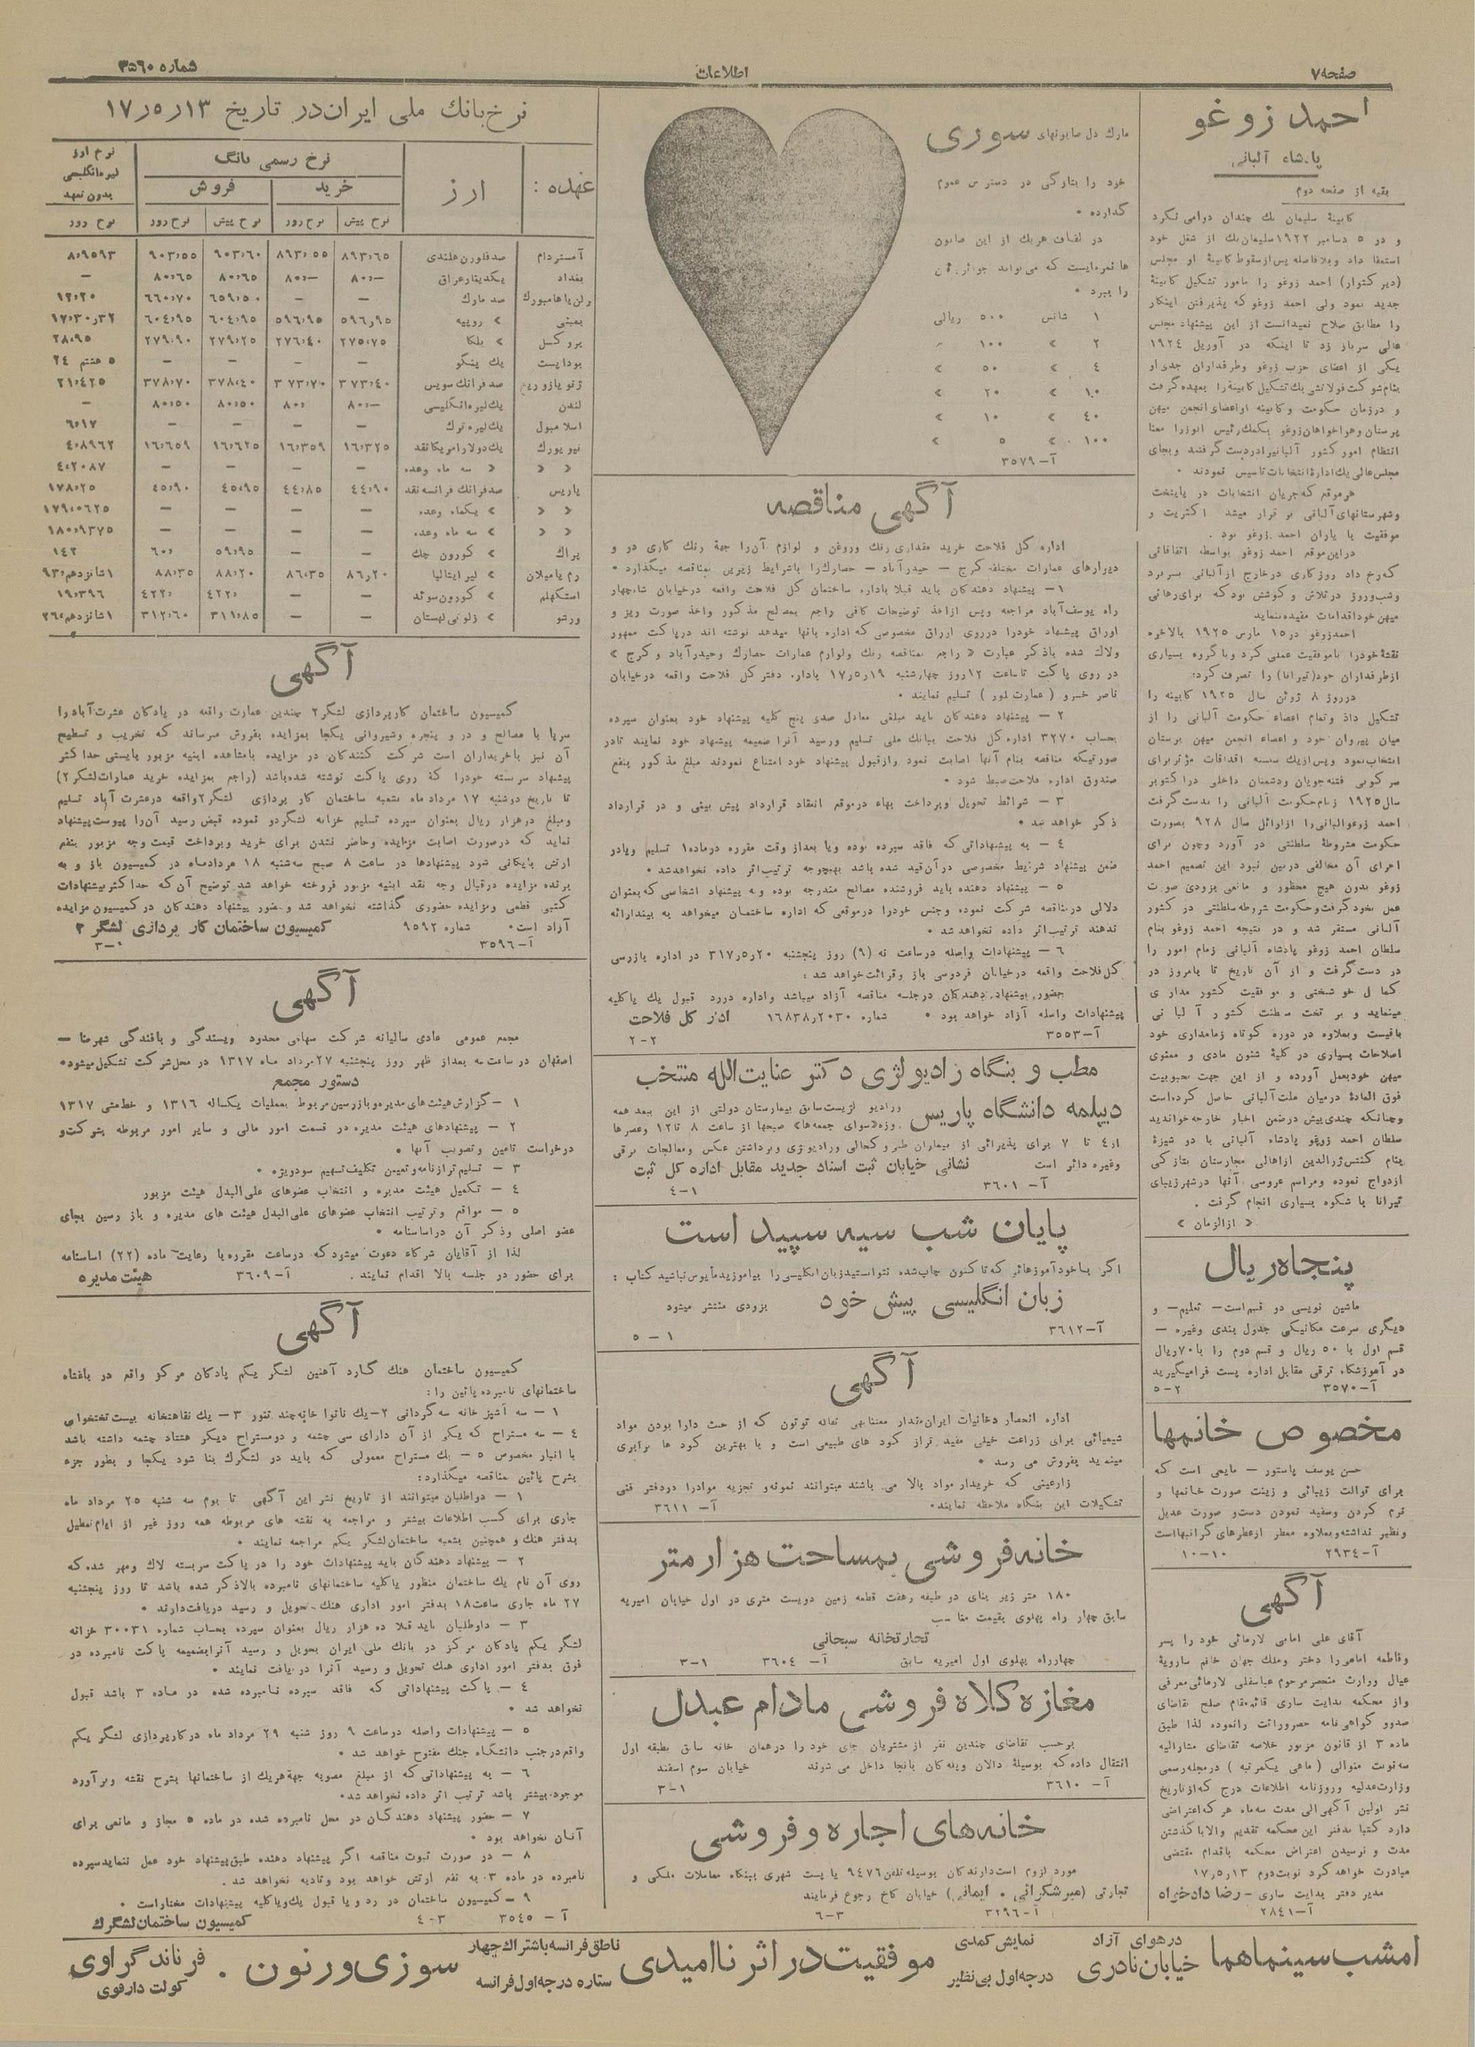 صفحه ۷
اطلاعات
شماره ۳۵۶۰
احمد زوغو
پادشاه آلبانی
بقیه از صفحه دوم
کابینهٔ سلیمان بك چندان دوامی نکرد
و در ۵ دسامبر ۱۹۲۲ سلیمان بك از شغل خود
استعفا داد و بلافاصله پس از سقوط کابینهٔ او مجلس
(دیرکتوار) احمد زوغو را مامور تشکیل کابینهٔ
جدید نمود ولی احمد زوغو که پذیرفتن اینکار
را مطابق صلاح نمیدانست از این پیشنهاد مجلس
عالی سرباز زد تا اینکه در آوریل ۱۹۲۴
یکی از اعضای حزب زوغو وطرفداران جدی او
بنام شوکت فولاتشی بك تشکیل کابینه را بعهده گرفت
و درزمان حکومت وکابینه او اعضای انجمن میهن
پرستان وهواخواهان زوغو بکمك رئیس
انتظام امور کشور آلبانی را در دست گرفتند وبجای
مجلس عالی یك ادارهٔ انتخابات تاسیس نمودند ۰
هرموقع که جریان انتخابات در پایتخت
وشهرستانهای آلبانی برقرار میشد اکثریت و
موفقیت با یاران احمد زوغو بود .
دراین موقع احمد زوغو بواسطه اتفاقاتی
که رخ داد روزگاری درخارج از آلبانی بسربرد
وشب وروز درتلاش و کوشش بود که برای رهائی
میهن خود اقدامات مفیده بنماید
احمد زوغو در ۱۵ مارس ۱۹۲۵ بالاخره
نقشهٔ خودرا باموفقیت عملی کرد وبا گروه بسیاری
از طرفداران خود (تیرانا) را تصرف کرد:
درروز ۸ ژوئن سال ۱۹۲۵ کابینه را
تشکیل داد وتمام اعضاء حکومت آلبانی را از
میان پیروان خود و اعضاء انجمن میهن پرستان
انتخاب نمود وپس از یك سلسله اقدامات مؤثر برای
سرکوبی فتنه جویان ودشمنان داخلی دراکتوبر
سال ۱۹۲۵ زمام حکومت آلبانی را بدست گرفت
احمد زوغو آلبانی را از اوائل سال ۹۲۸ بصورت
حکومت مشروطهٔ سلطنتی در آورد وچون برای
اجرای آن مخالفی دربین نبود این تصمیم احمد
زوغو بدون هیچ محظور و مانعی بزودی صورت
عمل بخود گرفت وحکومت مشروطه سلطنتی در کشور
آلبانی مستقر شد و در نتیجه احمد زوغو بنام
سلطان احمد زوغو پادشاه آلبانی زمام امور را
در دست گرفت و از آن تاریخ تا بامروز در
کمال خوشبختی و موفقیت کشور مداری
مینماید و بر تخت سلطنت کشور آلبانی
باقیست وبعلاوه در دوره کوتاه زمامداری خود
اصلاحات بسیاری در کلیهٔ شئون مادی و معنوی
میهن خود بعمل آورده و از این جهت محبوبیت
فوق العادهٔ درمیان ملت آلبانی حاصل کرده است
وچنانکه چندی پیش درضمن اخبار خارجه خواندید
سلطان احمد زوغو پادشاه آلبانی با دو شیزهٔ
بنام کنتس ژرالدین از اهالی مجارستان بتازگی
ازدواج نموده ومراسم عروسی آنها در شهر زیبای
تیرانا با شکوه بسیاری انجام گرفت .
« از الزمان »
پنجاه ریال
ماشین نویسی دو قسم است — تعلیم — و
دیگری سرعت مکانیکی جدول بندی وغیره —
قسم اول با ۵۰ ریال و قسم دوم را با ۷۰ ریال
در آموزشگاه ترقی مقابل اداره پست فرامیگیرید
آ—۳۵۷۰ ۲—۵
مخصوص خانمها
حسن یوسف پاستور — مایعی است که
برای توالت زیبائی و زینت صورت خانمها و
نرم کردن وسفید نمودن دست و صورت عدیل
ونظیر نداشته وبعلاوه معطر از عطرهای گرانبها است
آ—۲۹۳۴ ۱۰—۱۰
آگهی
آقای علی امامی لاریمانی خود را پسر
وفاطمه امامی را دختر وملك جهان خانم ساروبهٔ
عیال وراث منحصر مرحوم عباسقلی لاریمانی معرفی
واز محکمه بدایت ساری قائم مقام صلح تقاضای
صدور گواهی نامه حصر وراثت را نموده لذا طبق
ماده ۳ از قانون مزبور خلاصه تقاضای مشارالیه
سه نوبت متوالی (ماهی یکمرتبه) درمجله رسمی
وزارت عدلیه وروزنامه اطلاعات درج که از تاریخ
نشر اولین آگهی الی مدت سه ماه هر که اعتراضی
دارد کتبا بدفتر این محکمه تقدیم والا با گذشتن
مدت و نرسیدن اعتراض محکمه باقدام مقتضی
مبادرت خواهد کرد نوبت دوم ۱۳ر۵ر۱۷
مدیر دفتر بدایت ساری — رضا دادخواه
آ—۲۸۴۱
مارك دل صابونهای سوری
خود را بتازگی در دسترس عموم
گذارده ۰
در لفاف هریك از این صابون
ها نمره ایست که می تواند جوائز ذیل
را ببرد ۰
۱ شانس ۵۰۰ ریالی
۲ » ۱۰۰ »
۴ » ۵۰ »
۱۰ » ۲۰ »
۴۰ » ۱۰ »
۱۰۰ » ۵ »
آ—۳۵۷۹
آگهی مناقصه
اداره کل فلاحت خرید مقداری رنگ وروغن و لوازم آن را جهة رنگ کاری در و
دیوارهای عمارات مختلفه کرج — حیدرآباد — حصارك را باشرایط زیرین بمناقصه میگذارد ۰
۱ — پیشنهاد دهندگان باید قبلا باداره ساختمان کل فلاحت واقعه درخیابان شاه چهار
راه یوسف آباد مراجعه وپس از اخذ توضیحات کافی راجع بمصالح مذکور واخذ صورت ریز و
اوراق پیشنهاد خودرا درروی اوراق مخصوصی که اداره بآنها میدهد نوشته اند درپاکت ممهور
ولاك شده باذکر عبارت « راجع بمناقصه رنگ ولوازم عمارات حصارك وحیدرآباد و کرج »
در روی پاکت تا ساعت ۱۲ روز چهارشنبه ۱۹ر۵ر۱۷ بادار، دفتر کل فلاحت واقعه درخیابان
ناصر خسرو ( عمارت لمور ) تسلیم نمایند ۰
۲ — پیشنهاد دهندگان باید مبلغی معادل صدی پنج کلیه پیشنهاد خود بعنوان سپرده
بحساب ۳۲۷۰ اداره کل فلاحت ببانك ملی تسلیم ورسید آنرا ضمیمه پیشنهاد خود نمایند تا در
صورتیکه مناقصه بنام آنها اصابت نمود وازقبول پیشنهاد خود امتناع نمودند مبلغ مذکور بنفع
صندوق اداره فلاحت ضبط شود ۰
۳ — شرائط تحویل وپرداخت بهاء درموقع انعقاد قرارداد پیش بینی و در قرارداد
ذکر خواهد شد ۰
۴ — به پیشنهاداتی که فاقد سپرده بوده ویا بعداز وقت مقرره درماده ۱ تسلیم ویادر
ضمن پیشنهاد شرایط مخصوصی در آن قید شده باشد بهیچوجه ترتیب اثر داده نخواهد شد ۰
۵ — پیشنهاد دهنده باید فروشنده مصالح مندرجه بوده و به پیشنهاد اشخاصی که بعنوان
دلالی در مناقصه شرکت نموده وجنس خودرا درموقعی که اداره ساختمان میخواهد به بیند ارائه
ندهند ترتیب اثر داده نخواهد شد ۰
۶ — پیشنهادات واصله درساعت نه (۹) روز پنجشنبه ۲۰ر۵ر۳۱۷ در اداره بازرسی
کل فلاحت واقعه درخیابان فردوسی باز وقرائت خواهد شد :
حضور پیشنهاد دهندگان درجلسه مناقصه آزاد میباشد واداره دررد قبول یك یا کلیه
پیشنهادات واصله آزاد خواهد بود ۰ شماره ۲۰۳۰ر۱۶۸۳۸ اداره کل فلاحت
آ—۳۵۵۳ ۲—۲
مطب و بنگاه رادیولژی دکتر عنایت الله منتخب
دیپلمه دانشگاه پاریس ورادیو لژیست سابق بیمارستان دولتی از این ببعد همه
روزه «سوای جمعه ها» صبحها از ساعت ۸ تا ۱۲ وعصرها
از ۴ تا ۷ برای پذیرائی از بیماران طبی و کحالی ورادیولژی وبرداشتن عکس ومعالجات برقی
وغیره دائر است نشانی خیابان ثبت اسناد جدید مقابل اداره کل ثبت
آ—۳۶۰۱ ۱—۴
پایان شب سیه سپید است
اگر با خودآموزهائی که تا کنون چاپ شده نتوانستید زبان انگلیسی را بیاموزید مأیوس نباشید کتاب :
زبان انگلیسی پیش خود بزودی منتشر میشود
آ—۳۶۱۲ ۱—۵
آگهی
اداره انحصار دخانیات ایران مقدار معتنابهی تفاله توتون که از حیث دارا بودن مواد
شیمیائی برای زراعت خیلی مفید تراز کود های طبیعی است و با بهترین کود ها برابری
مینماید بفروش می رسد ۰
زارعینی که خریدار مواد بالا می باشند میتوانند نمونه و تجزیه موادرا دردفتر فنی
تشکیلات این بنگاه ملاحظه نمایند۰ آ—۳۶۱۱
خانه فروشی بمساحت هزار متر
۱۸۰ متر زیر بنای دو طبقه وهفت قطعه زمین دویست متری در اول خیابان امیریه
سابق چهار راه پهلوی بقیمت مناسب
تجارتخانه سبحانی
چهارراه پهلوی اول امیریه سابق آ—۳۶۰۴ ۱—۳
مغازه کلاه فروشی مادام عبدل
برحسب تقاضای چندین نفر از مشتریان جای خود را درهمان خانه سابق بطبقه اول
انتقال داده که بوسیلهٔ دالان وپله کان بآنجا داخل می شوند خیابان سوم اسفند
آ—۳۶۱۰ ۱—۳
خانه های اجاره و فروشی
مورد لزوم است دارندگان بوسیله تلفن ۹۴۷۶ یا پست شهری ببنگاه معاملات ملکی و
تجارتی (میرشکرائی ۰ ایمانی) خیابان کاخ رجوع فرمایند
آ—۳۲۹۶ ۳—۶
نرخ بانك ملی ایران در تاریخ ۱۳ر۵ر۱۷
عهده : ارز نرخ رسمی بانگ نرخ ارز لیره انگلیسی بدون تعهد
خرید فروش
نرخ پیش نرخ روز نرخ پیش نرخ روز نرخ روز
آمستردام صد فلورن هلندی ۸۹۳٫۶۵ ۸۹۳٫۵۵ ۹۰۳٫۶۰ ۹۰۳٫۵۵ ۸٫۹۵۹۳
بغداد یکدینار عراق ۸۰٫— ۸۰٫— ۸۰٫۶۵ ۸۰٫۶۵ —
برلن یا هامبورك صد مارك — — ۶۵۹٫۵۰ ۶۶۰٫۷۰ ۱۲٫۲۰
بمبئی » روپیه ۵۹۶٫۹۵ ۵۹۶٫۹۵ ۶۰۴٫۹۵ ۶۰۴٫۹۵ ۱۷٫۳۰ر۳۲
بروکسل » بلگا ۲۷۵٫۷۵ ۲۷۶٫۴۰ ۲۷۹٫۲۵ ۲۷۹٫۹۰ ۲۸٫۹۵
بوداپست یك پنگو — — — — ۵ هشتم ۲۴
ژنو یا زوریخ صد فرانك سویس ۳۷۳٫۴۰ ۳۷۳٫۷۰ ۳۷۸٫۴۰ ۳۷۸٫۷۰ ۲۱٫۴۲۵
لندن یك لیره انگلیسی ۸۰٫— ۸۰٫ ۸۰٫۵۰ ۸۰٫۵۰ —
اسلامبول یك لیره ترك — — — — ۶٫۱۷
نیویورك یك دولار امریکا نقد ۱۶٫۳۲۵ ۱۶٫۳۵۹ ۱۶٫۶۲۵ ۱۶٫۶۵۹ ۴٫۸۹۶۲
» » » سه ماه وعده — — — — ۴٫۲۰۸۷
پاریس صد فرانك فرانسه نقد ۴۴٫۹۰ ۴۴٫۸۵ ۴۵٫۹۵ ۴۵٫۹۰ ۱۷۸٫۲۵
» » » یکماه وعده — — — — ۱۷۹٫۰۶۲۵
» » » سه ماه وعده — — — — ۱۸۰٫۹۳۷۵
پراك » کورون چك — — ۵۹٫۹۵ ۶۰٫ ۱۴۲
رم یا میلان » لیر ایتالیا ۸۶٫۲۰ ۸۶٫۳۵ ۸۸٫۲۰ ۸۸٫۳۵ ۱ شانزدهم ۹۳
استکهلم » کورون سوئد — — ۴۲۲٫ ۴۲۲٫ ۱۹٫۳۹۶
ورشو » زلوتی لهستان — — ۳۱۱٫۸۵ ۳۱۲٫۶۰ ۱ شانزدهم ۲۶
آگهی
کمیسیون ساختمان کارپردازی لشگر ۲ چندین عمارت واقعه در پادگان عشرت آباد را
سرپا با مصالح و در و پنجره وشیروانی یکجا بمزایده بفروش میرساند که تخریب و تسطیح
آن نیز باخریداران است شرکت کنندگان در مزایده بامشاهده ابنیه مزبور بایستی حداکثر
پیشنهاد سربسته خودرا که روی پاکت نوشته شده باشد (راجع بمزایده خرید عمارات لشگر ۲)
تا تاریخ دوشنبه ۱۷ مرداد ماه بشعبه ساختمان کار پردازی لشگر ۲ واقعه در عشرت آباد تسلیم
ومبلغ ده هزار ریال بعنوان سپرده تسلیم خزانه لشگر دو نموده قبض رسید آن را پیوست پیشنهاد
نماید که درصورت اصابت مزایده وحاضر نشدن برای خرید وپرداخت قیمت وجه مزبور بنفع
ارتش بایگانی شود پیشنهادها در ساعت ۸ صبح سه شنبه ۱۸ مرداد ماه در کمیسیون باز و به
برنده مزایده درقبال وجه نقد ابنیه مزبور فروخته خواهد شد توضیح آن که حداکثر پیشنهادات
کتبی قطعی ومزایده حضوری گذاشته نخواهد شد وحضور پیشنهاد دهندگان در کمیسیون مزایده
آزاد است۰ شماره ۹۵۹۲ کمیسیون ساختمان کار پردازی لشگر ۲
آ—۳۵۹۶ ۱—۳
آگهی
مجمع عمومی عادی سالیانه شرکت سهامی محدود ریسندگی و بافندگی شهرضا —
اصفهان در ساعت سه بعداز ظهر روز پنجشنبه ۲۷ مرداد ماه ۱۳۱۷ در محل شرکت تشکیل میشود۰
دستور مجمع
۱ — گزارش هیئت های مدیره و بازرسین مربوط بعملیات یکساله ۱۳۱۶ و خط مشی ۱۳۱۷
۲ — پیشنهادهای هیئت مدیره در قسمت امور مالی و سایر امور مربوطه بشرکت و
درخواست تامین وتصویب آنها ۰
۳ — تسلیم ترازنامه وتعیین تکلیف تسهیم سود ویژه ۰
۴ — تکمیل هیئت مدیره و انتخاب عضوهای علی البدل هیئت مزبور
۵ — مواقع وترتیب انتخاب عضوهای علی البدل هیئت های مدیره و باز رسین بجای
عضو اصلی وذکر آن دراساسنامه ۰
لذا از آقایان شرکاء دعوت میشود که درساعت مقرره با رعایت ماده (۲۲) اساسنامه
برای حضور در جلسه بالا اقدام نمایند . آ—۳۶۰۹ هیئت مدیره
آگهی
کمیسیون ساختمان هنك گارد آهنین لشگر یکم پادگان مرکز واقع در باغشاه
ساختمانهای نامبرده پائین را :
۱ — سه آشپز خانه سه گردانی ۲ — یك نانوا خانه چند تنور ۳ — یك نقاهتخانه بیست تختخوابی
۴ — سه مستراح که یکی از آن دارای سی چشمه و دومستراح دیگر هشتاد چشمه داشته باشد
با انبار مخصوص ۵ — یك مستراح معمولی که باید در لشگرك بنا شود یکجا و بطور جزء
بشرح پائین بمناقصه میگذارد:
۱ — داوطلبان میتوانند از تاریخ نشر این آگهی تا یوم سه شنبه ۲۵ مرداد ماه
جاری برای کسب اطلاعات بیشتر و مراجعه به نقشه های مربوطه همه روز غیر از ایام تعطیل
بدفتر هنك و همچنین بشعبه ساختمان لشگر یکم مراجعه نمایند ۰
۲ — پیشنهاد دهندگان باید پیشنهادات خود را در پاکت سربسته لاك ومهر شده که
روی آن نام یك ساختمان منظور یا کلیه ساختمانهای نامبرده بالا ذکر شده باشد تا روز پنجشنبه
۲۷ ماه جاری ساعت ۱۸ بدفتر امور اداری هنك تحویل و رسید دریافت دارند ۰
۳ — داوطلبان باید قبلا ده هزار ریال بعنوان سپرده بحساب شماره ۳۰۰۳۱ خزانه
لشگر یکم پادگان مرکز در بانك ملی ایران تحویل و رسید آنرا بضمیمه پاکت نامبرده در
فوق بدفتر امور اداری هنك تحویل و رسید آنرا دریافت نمایند ۰
۴ — پاکت پیشنهاداتی که فاقد سپرده نامبرده شده در ماده ۳ باشد قبول
نخواهد شد ۰
۵ — پیشنهادات واصله درساعت ۹ روز شنبه ۲۹ مرداد ماه درکارپردازی لشگر یکم
واقع درجنب دانشگاه جنك مفتوح خواهد شد ۰
۶ — به پیشنهاداتی که از مبلغ مصوبه جهة هریك از ساختمانها بشرح نقشه وبرآورد
موجود بیشتر باشد ترتیب اثر داده نخواهد شد۰
۷ — حضور پیشنهاد دهندگان در محل نامبرده شده در ماده ۵ مجاز و مانعی برای
آنان نخواهد بود ۰
۸ — در صورت ثبوت مناقصه اگر پیشنهاد دهنده طبق پیشنهاد خود عمل ننماید سپرده
نامبرده در ماده ۳ به نفع ارتش خواهد بود وتادیه نخواهد شد .
۹ — کمیسیون ساختمان در رد و یا قبول یك ویا کلیه پیشنهادات مختار است ۰
آ—۳۵۴۵ ۳—۴ کمیسیون ساختمان لشگرك
امشب سینما هما در هوای آزاد خیابان نادری نمایش کمدی درجه اول بی نظیر موفقیت در اثر ناامیدی ناطق فرانسه باشتراك چهار ستاره درجه اول فرانسه سوزی ورنون . فرناند گراوی
کولت دارفوی